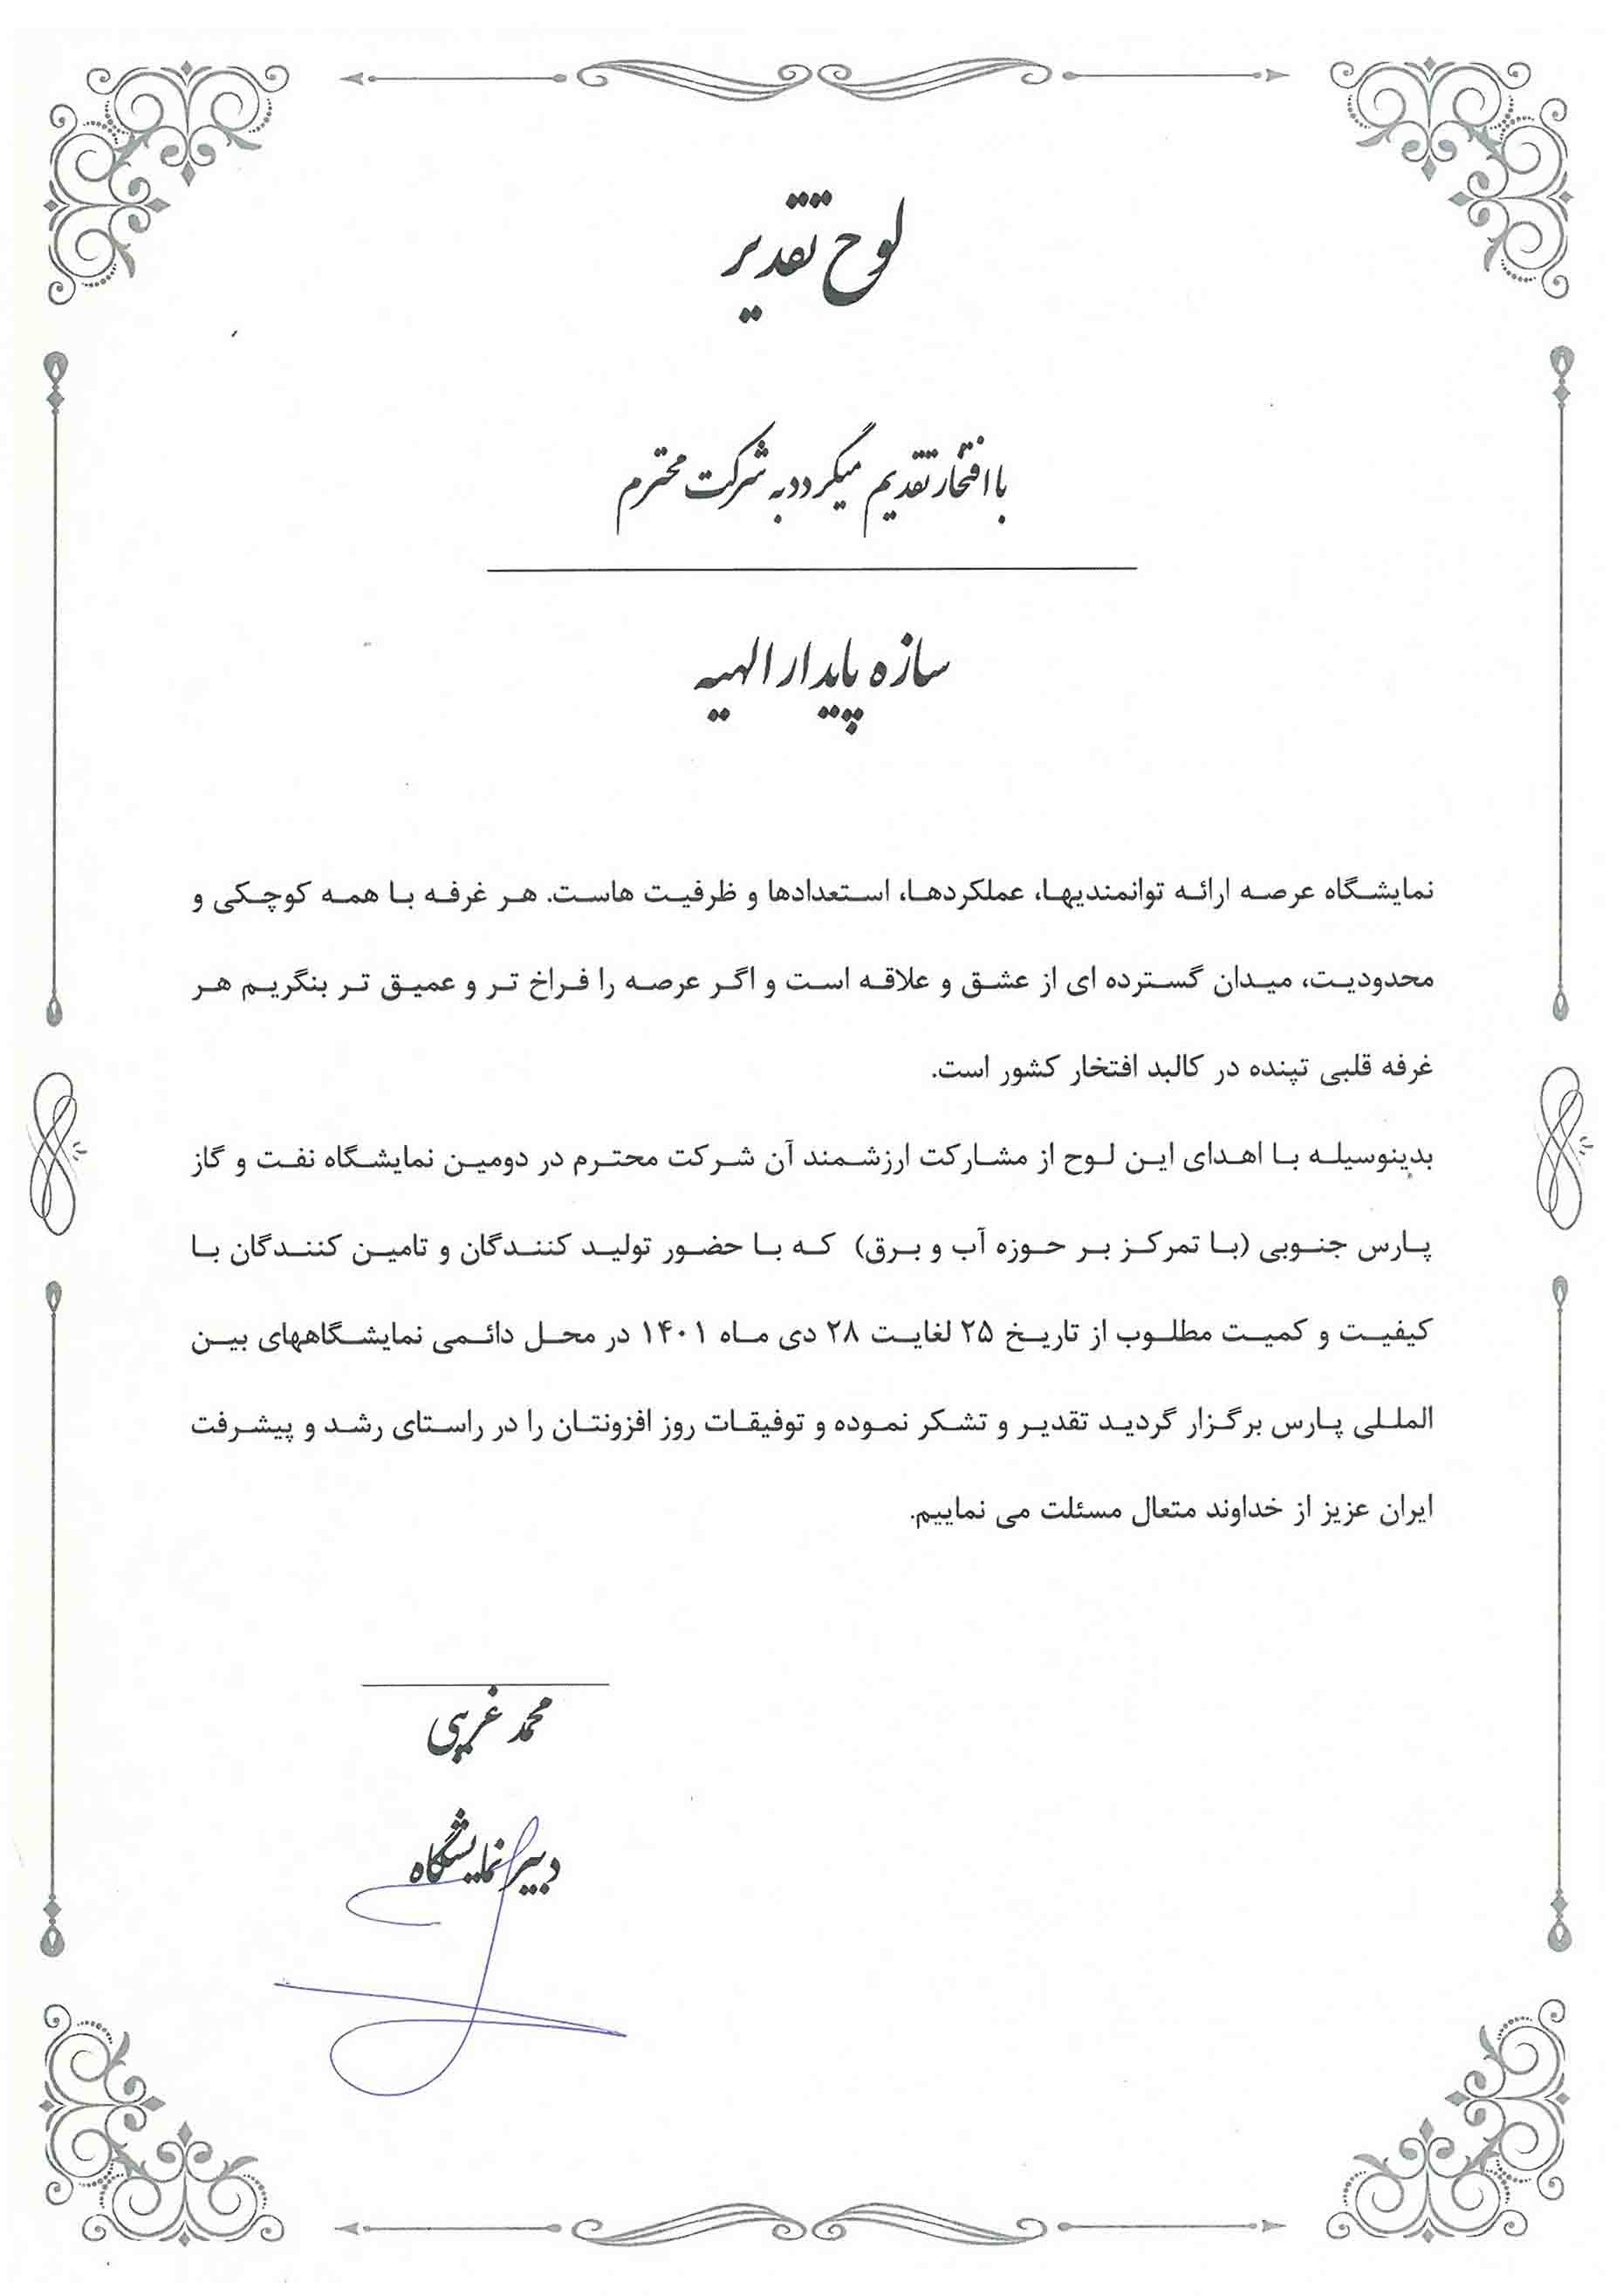 لوح تقدیر
با افتخار تقدیم میگردد به شرکت محترم
سازه پایدار الهیه
نمایشگاه عرصه ارائه توانمندیها، عملکردها، استعدادها و ظرفیت هاست. هر غرفه با همه کوچکی و
محدودیت، میدان گسترده ای از عشق و علاقه است و اگر عرصه را فراخ تر و عمیق تر بنگریم هر
غرفه قلبی تپنده در کالبد افتخار کشور است.
بدینوسیله با اهدای این لوح از مشارکت ارزشمند آن شرکت محترم در دومین نمایشگاه نفت و گاز
پارس جنوبی (با تمرکز بر حوزه آب و برق) که با حضور تولید کنندگان و تامین کنندگان با
کیفیت و کمیت مطلوب از تاریخ ۲۵ لغایت ۲۸ دی ماه ۱۴۰۱ در محل دائمی نمایشگاههای بین
المللی پارس برگزار گردید تقدیر و تشکر نموده و توفیقات روز افزونتان را در راستای رشد و پیشرفت
ایران عزیز از خداوند متعال مسئلت می نماییم.
محمد غریبی
دبیر نمایشگاه